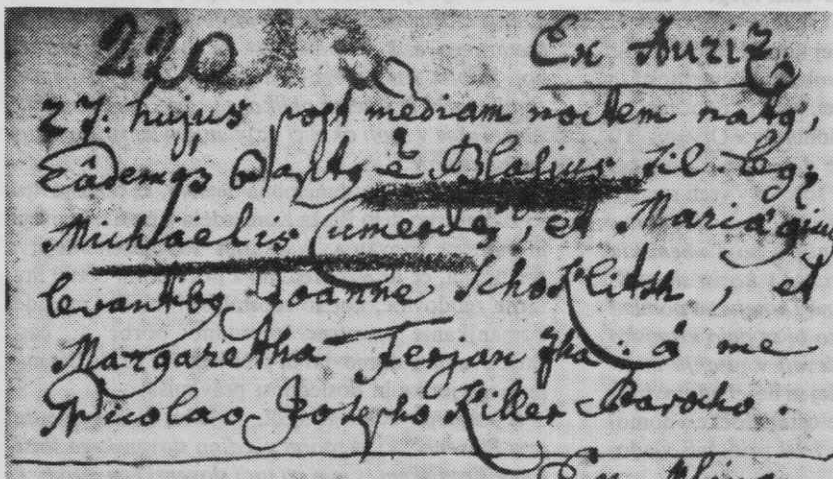 220
Ex Auriz
27. hujus post mediam noctem natq,
Eâdemq3 Baptq ẽ Blasius fil. leg.
Michäelis umerdez, et Mariæ
levantibq Joanne Schoklitsh, et
Margaretha Ferjan zha: â me
Nicolao Josepho Killer Parocho.